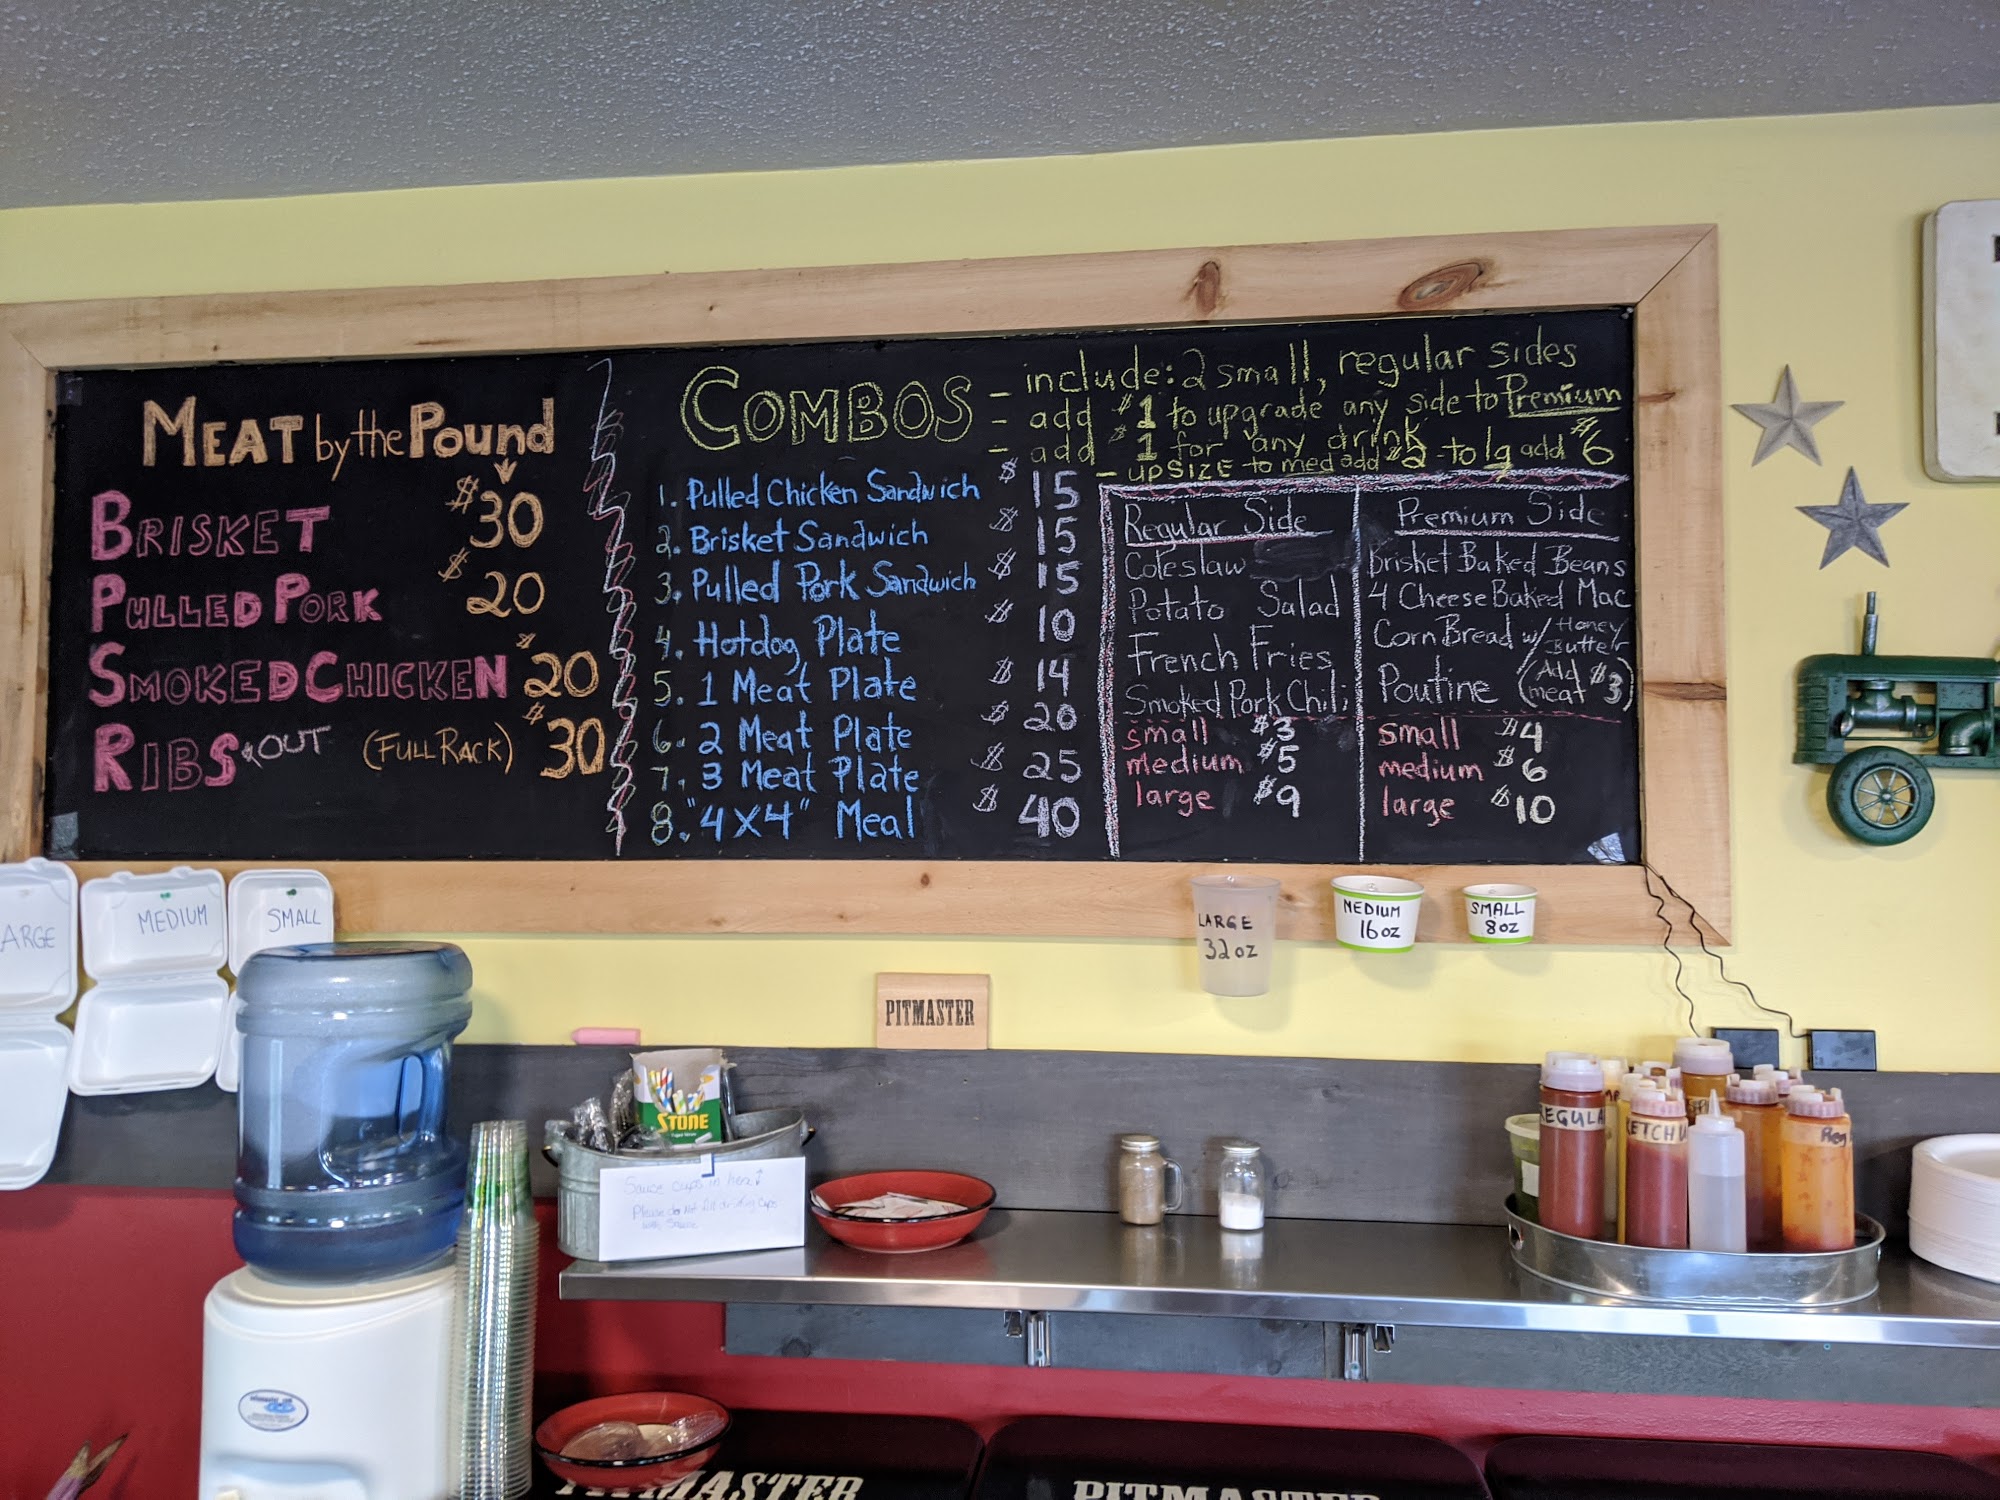 MEAT by the Pound
BRISKET $30
PULLED PORK $20
SMOKED CHICKEN $20
RIBS OUT (FULL RACK) $30
COMBOS - include: 2 small, regular sides
- add $1 to upgrade any side to Premium
- add $1 for any drink
- UPSIZE to med add $2 - to lg add $6
1. Pulled Chicken Sandwich $15
2. Brisket Sandwich $15
3. Pulled Pork Sandwich $15
4. Hotdog Plate $10
5. 1 Meat Plate $14
6. 2 Meat Plate $20
7. 3 Meat Plate $25
8. "4X4" Meal $40
Regular Side
Coleslaw
Potato Salad
French Fries
Smoked Pork Chili
small $3
medium $5
large $9
Premium Side
Brisket Baked Beans
4 Cheese Baked Mac
Corn Bread w/ Honey Butter
Poutine (Add meat $3)
small $4
medium $6
large $10
ARGE
MEDIUM
SMALL
LARGE
32oz
MEDIUM
16oz
SMALL
8oz
PITMASTER
STONE
Sauce cups in here
Please do Not fill drinking cups
with Sauce
REGULA
KETCHU
PITMASTER
PITMASTER